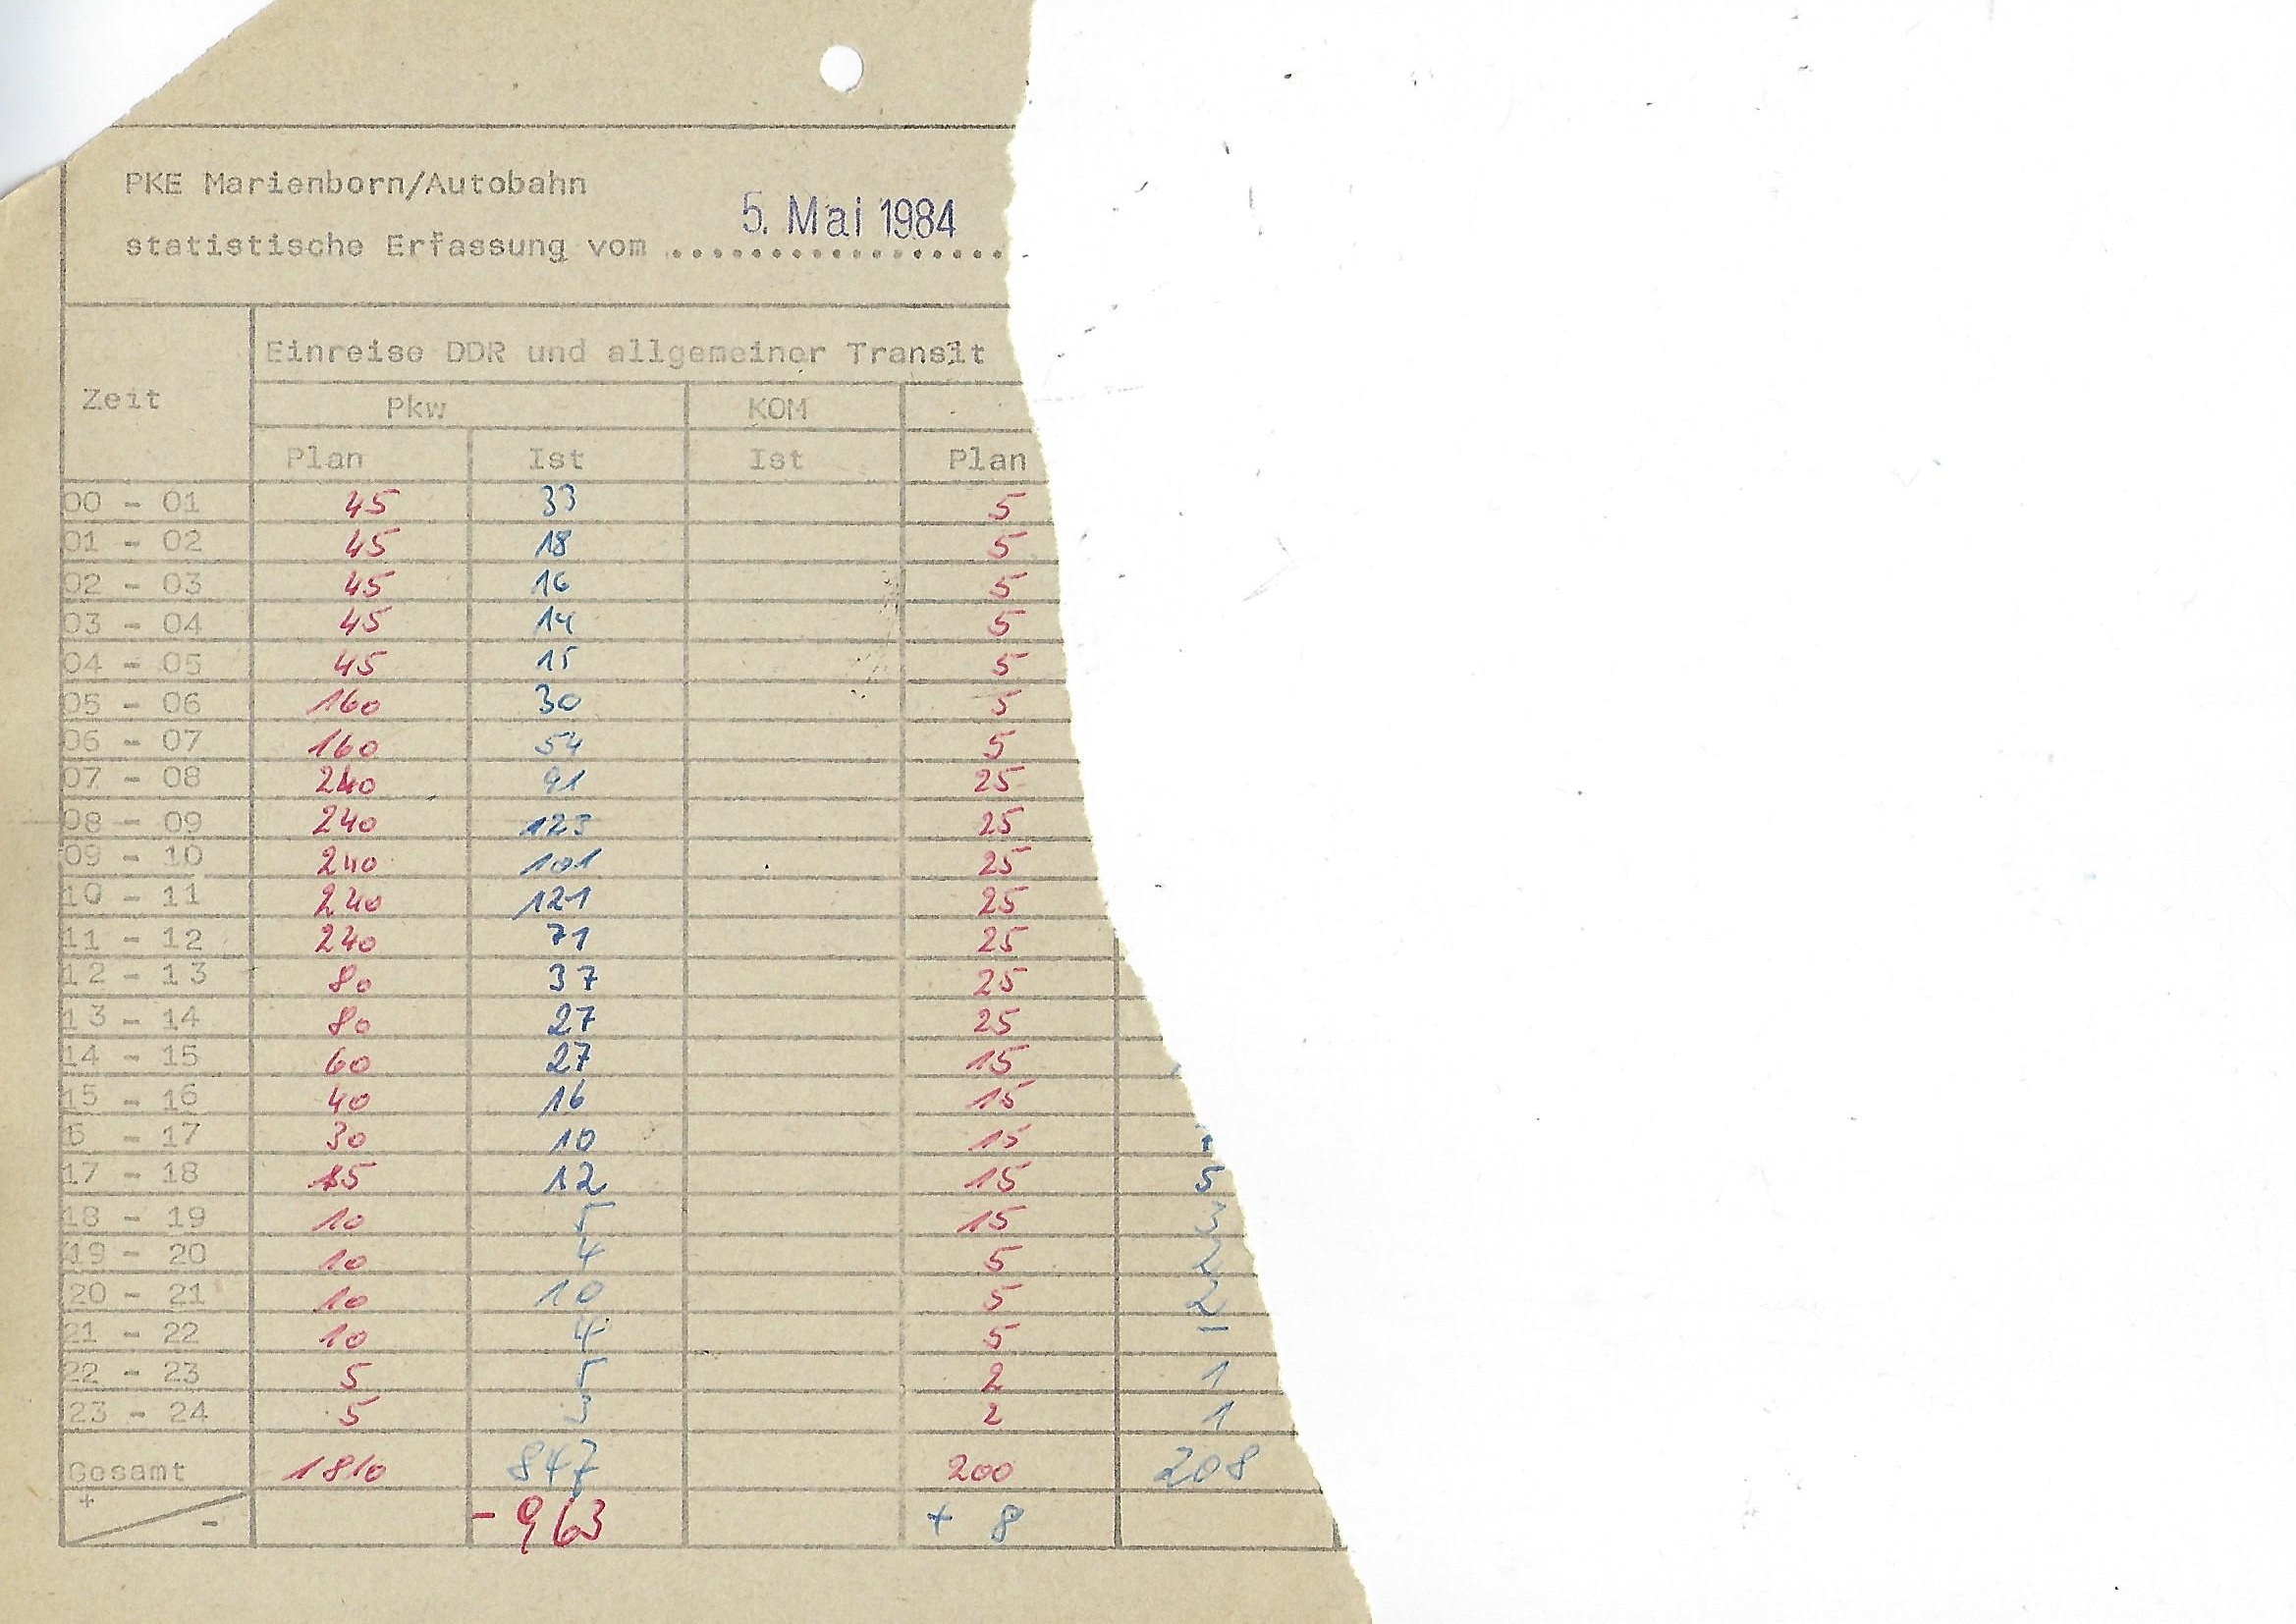 PKE Marienborn/Autobahn
5. Mai 1984
statistische Erfassung vom .................
Einreise DDR und allgemeiner Transit
Zeit
Pkw KOM
Plan Ist Ist Plan
00 - 01 45 33 5
01 - 02 45 18 5
02 - 03 45 16 5
03 - 04 45 14 5
04 - 05 45 15 5
05 - 06 160 30 5
06 - 07 160 54 5
07 - 08 240 91 25
08 - 09 240 123 25
09 - 10 240 101 25
10 - 11 240 121 25
11 - 12 240 71 25
12 - 13 80 37 25
13 - 14 80 27 25
14 - 15 60 27 15
15 - 16 40 16 15
6 - 17 30 10 15
17 - 18 15 12 15 5
18 - 19 10 5 15 3
19 - 20 10 4 5 2
20 - 21 10 10 5 2
21 - 22 10 4 5 –
22 - 23 5 5 2 1
23 - 24 5 3 2 1
Gesamt 1810 847 200 208
+ - - 963 + 8